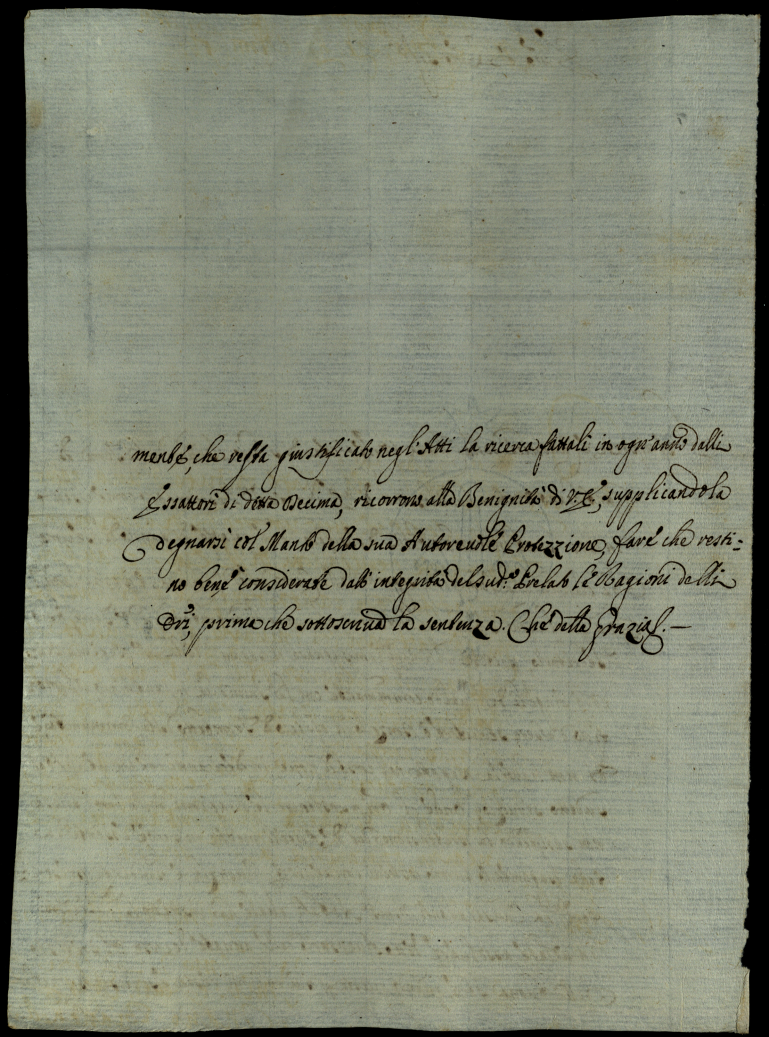 mente, che resta giustificato negl'Atti la ricerca fattali in ogn'anno dalli
Essattori di detta Decima, ricorrono alla Benignità di V.E., supplicandola
degnarsi col Manto della sua Autorevole Protezzione, fare che resti=
no bene considerate dall'integrità del sud.º Prelato le Ragioni delli
Orri, prima che sottoscriva la sentenza. Che della grazia